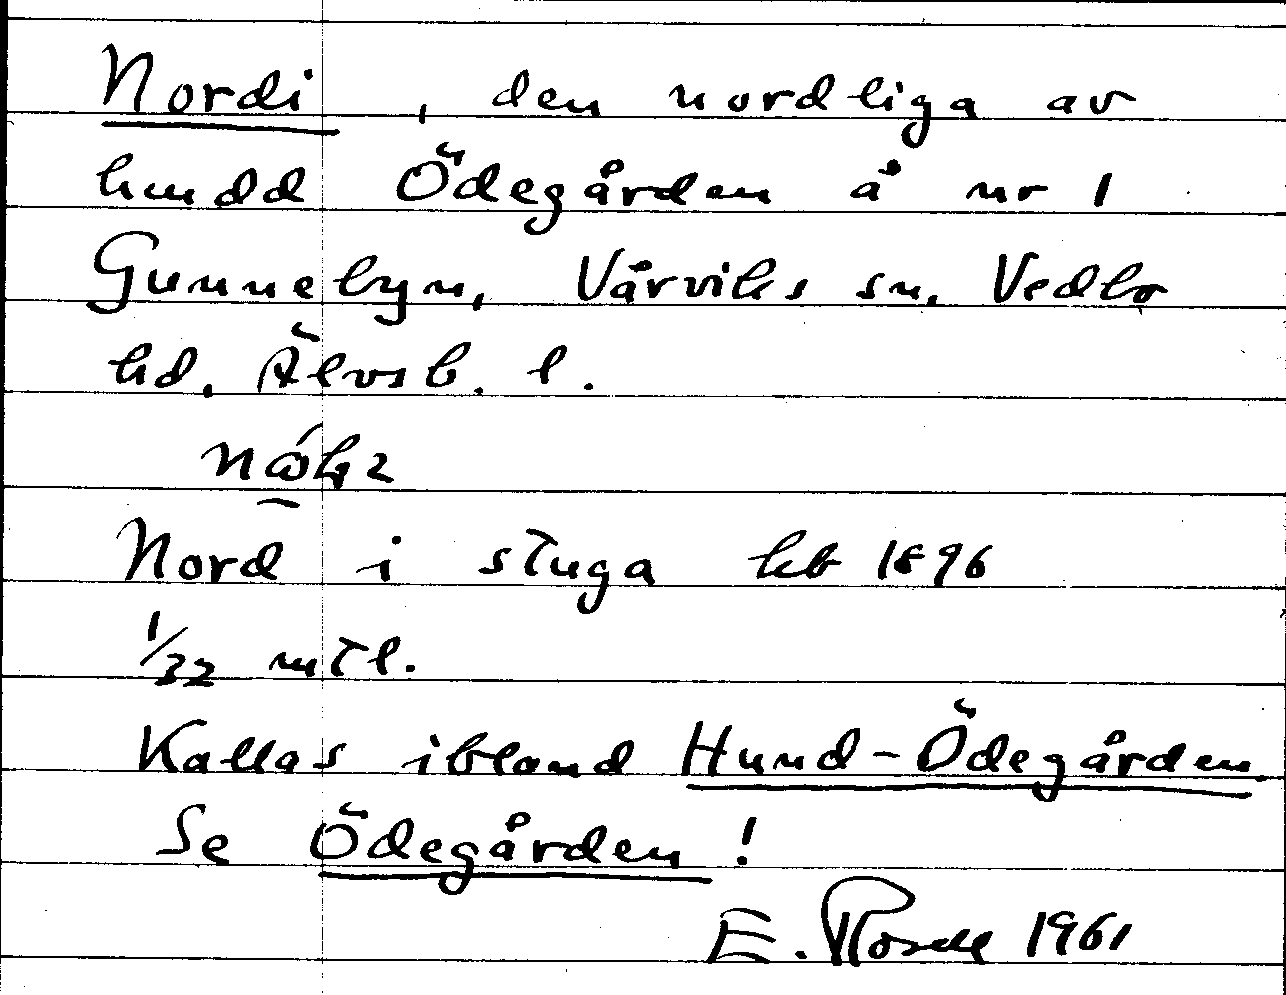 Nordi, den nordliga av
hmdd Ödegården å nr 1
Gunnebyn, Vårviks sn, Vedbo
hd. Älvsb. l.
Nord i stuga hb 1896
1/32 mtl.
Kallas ibland Hund-Ödegården.
Se Ödegården!
E. Rosell 1961